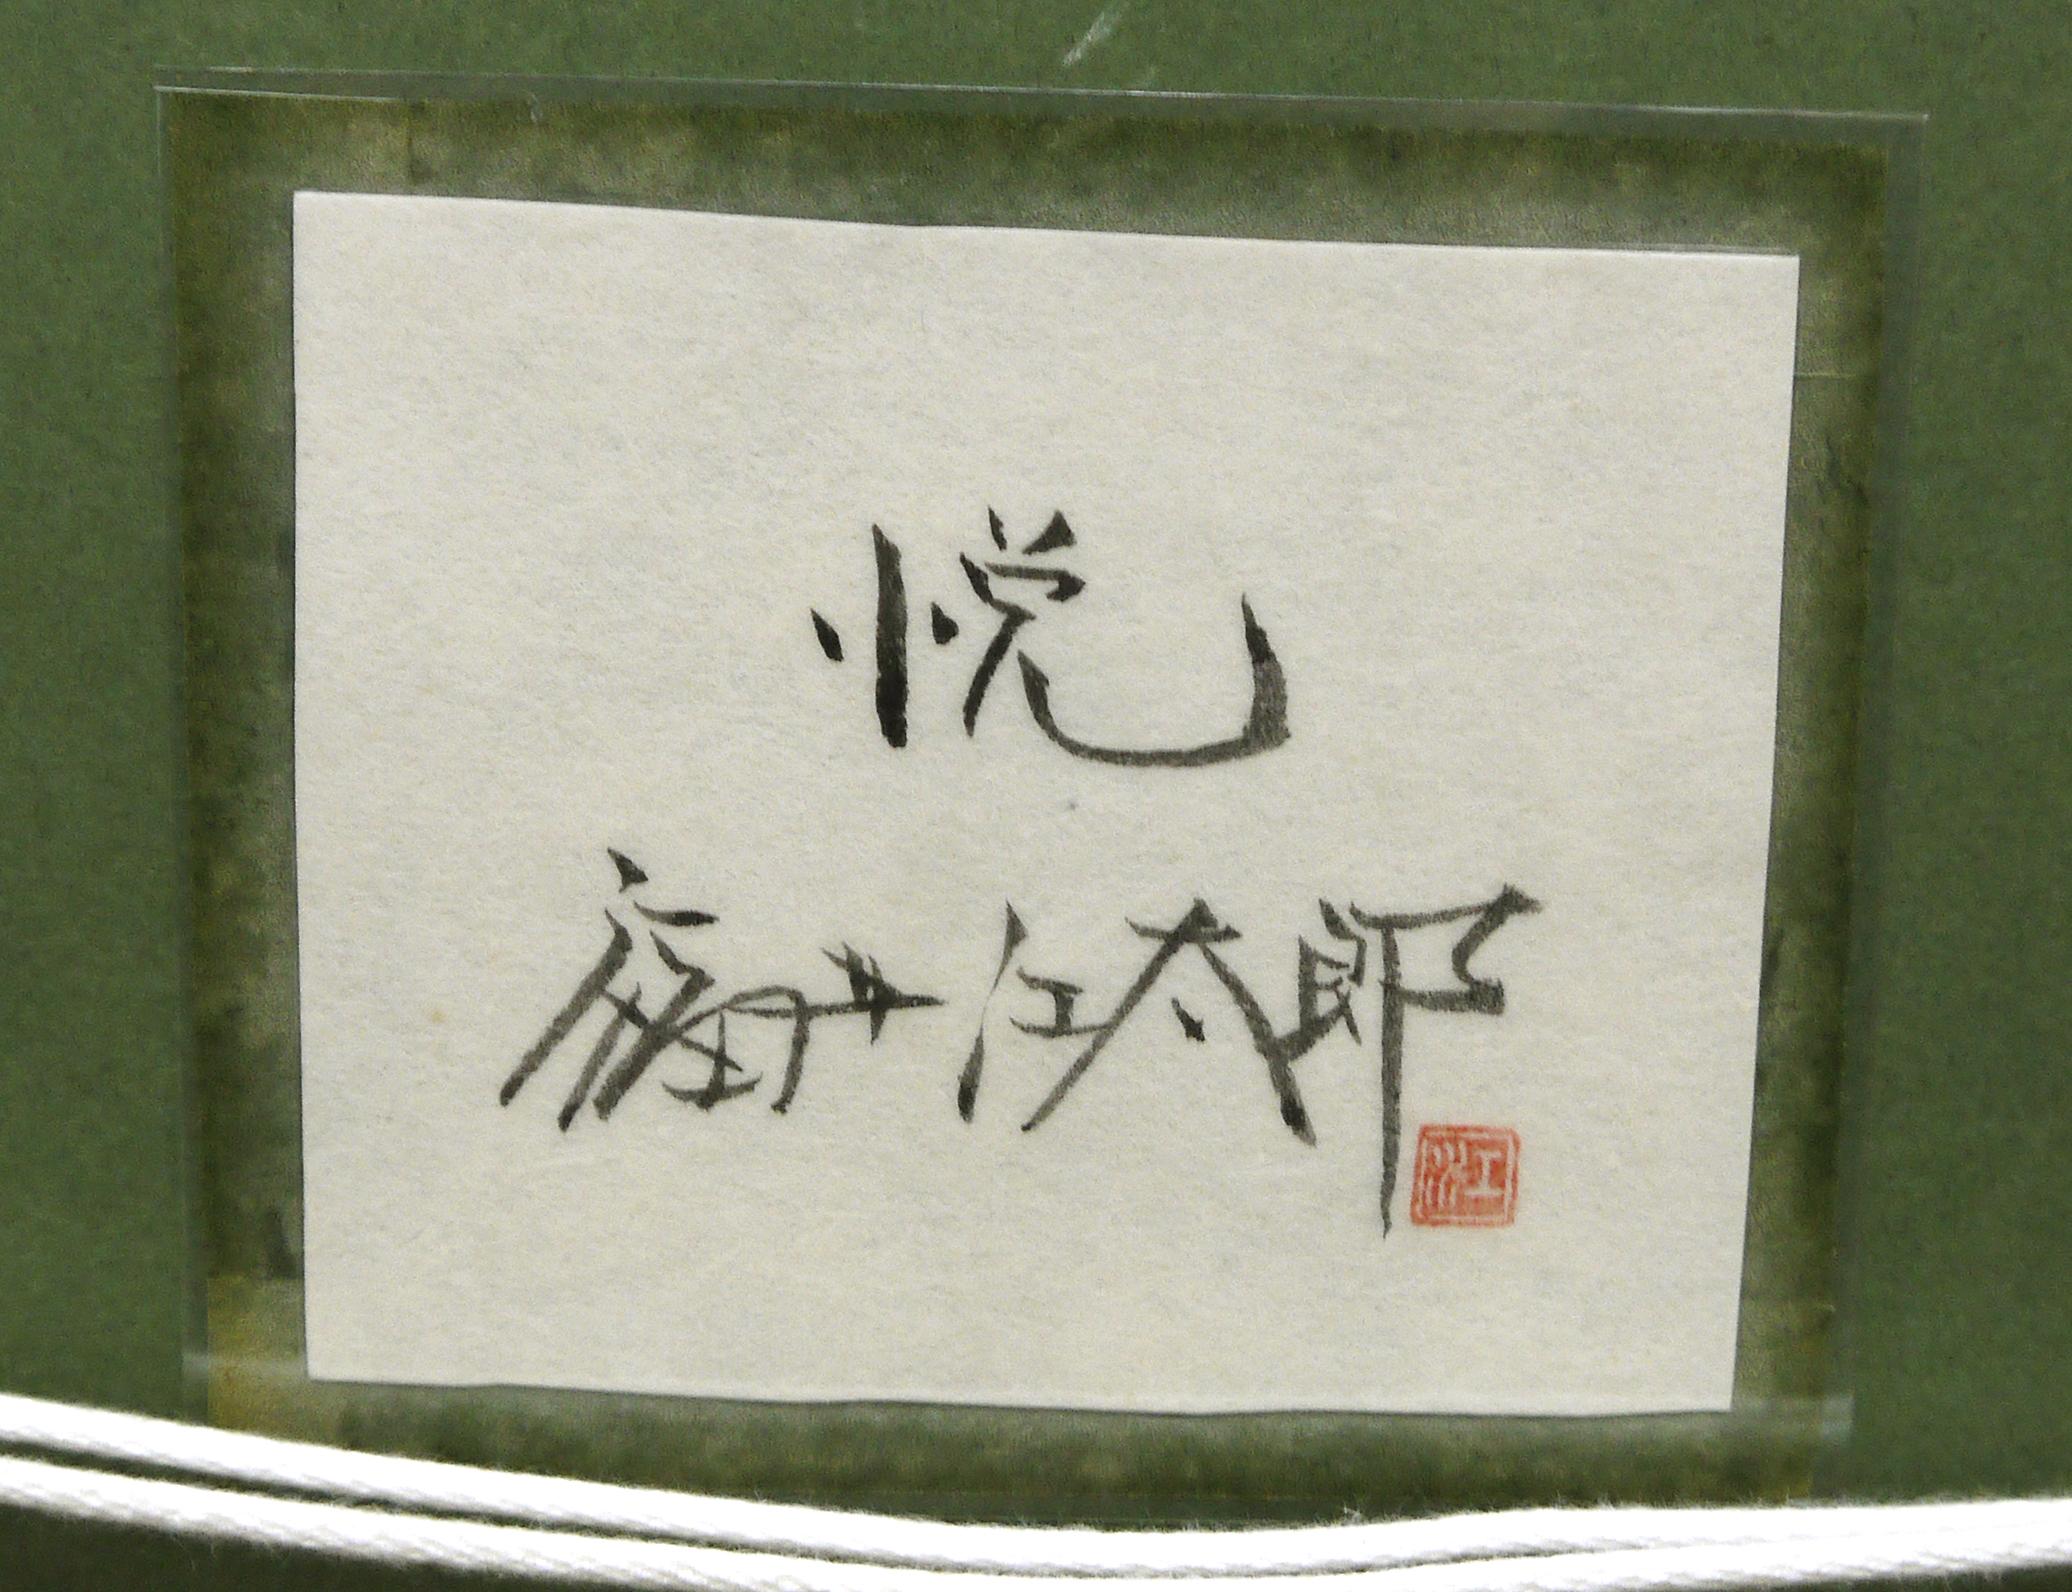 悦
福井江太郎
江